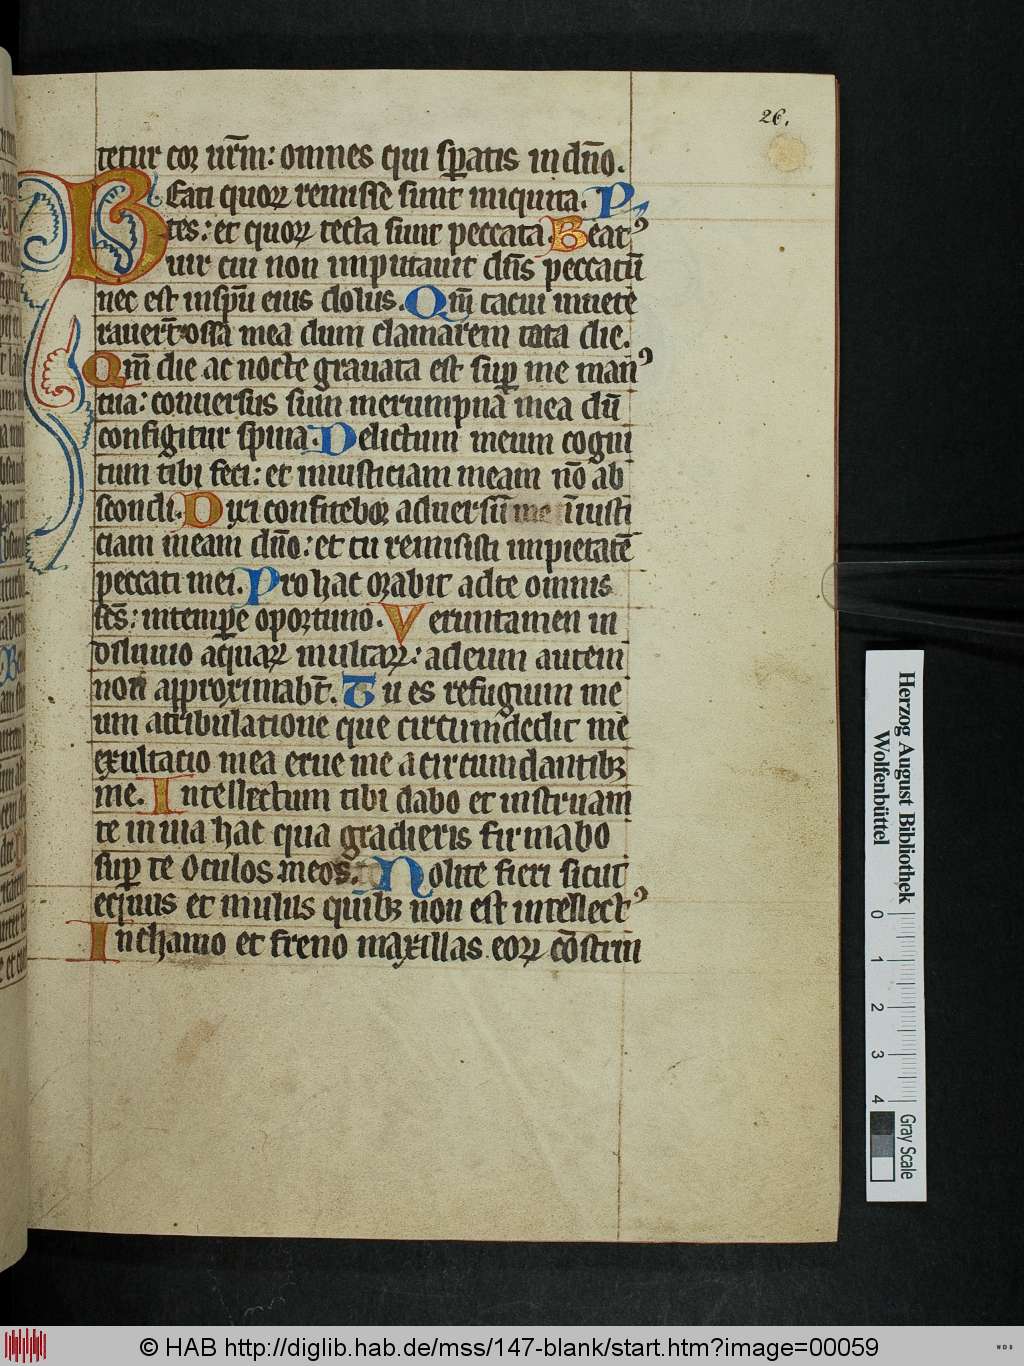 26.
tetur cor urm̄: omnes qui sꝑatis in dn̄o.
Beati quoꝝ remisse sunt iniquita. Ps
tes: et quoꝝ tecta sunt peccata. Beatꝰ
uir cui non imputauit dn̄s peccatū
nec est in sp̄u eius dolus. Qm̄ tacui inuete
rauert̄ ossa mea dum clamarem tota die.
Qm̄ die ac nocte grauata est suꝑ me manꝰ
tua: conuersus sum in erumpna mea dū
configitur spina. Delictum meum cogni
tum tibi feci: et iniusticiam meam nō ab
scondi. Dixi confitebor aduersū me iniusti
ciam meam dn̄o: et tu remisisti impietatē
peccati mei. Pro hac orabit ad te omnis
sc̄s: in tempe oportuno. Veruntamen in
diluuio aquaꝝ multaꝝ: ad eum autem
non approximabt̄. Tu es refugium me
um a tribulatione que circumdedit me
exultacio mea erue me a circumdantibꝫ
me. Intellectum tibi dabo et instruam
te in uia hac qua gradieris firmabo
suꝑ te oculos meos. Nolite fieri sicut
equus et mulus quibꝫ non est intellectꝰ
In chamo et freno maxillas eoꝝ cōstrin
Herzog August Bibliothek
Wolfenbüttel
0 1 2 3 4
Gray Scale
© HAB http://diglib.hab.de/mss/147-blank/start.htm?image=00059